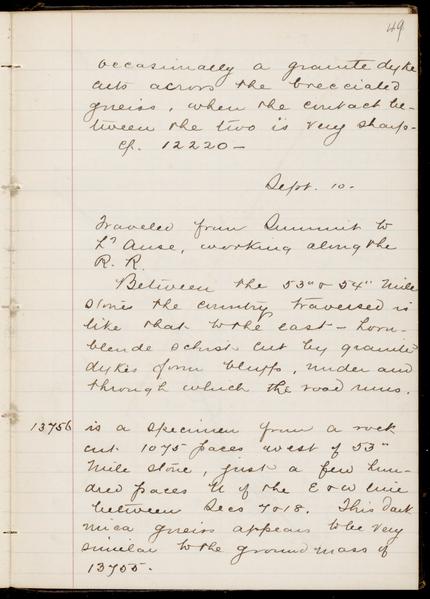 49
occasionally a granite dyke
cuts across the brecciated
gneiss, when the contact be-
tween the two is very sharp -
cf. 12220 -
Sept. 10.
Traveled from Summit to
L'Anse, working along the
R. R.
Between the 53" & 54" Mile
stones the country traversed is
like that to the east - horn-
blende schist cut by granite
dykes form bluffs, under and
through which the road runs.
13756 is a specimen from a rock
cut 1075 paces west of 53"
Mile stone, just a few hun-
dred paces N of the E & W line
between Secs 7 & 18. This dark
mica gneiss appears to be very
similar to the ground mass of
13755.